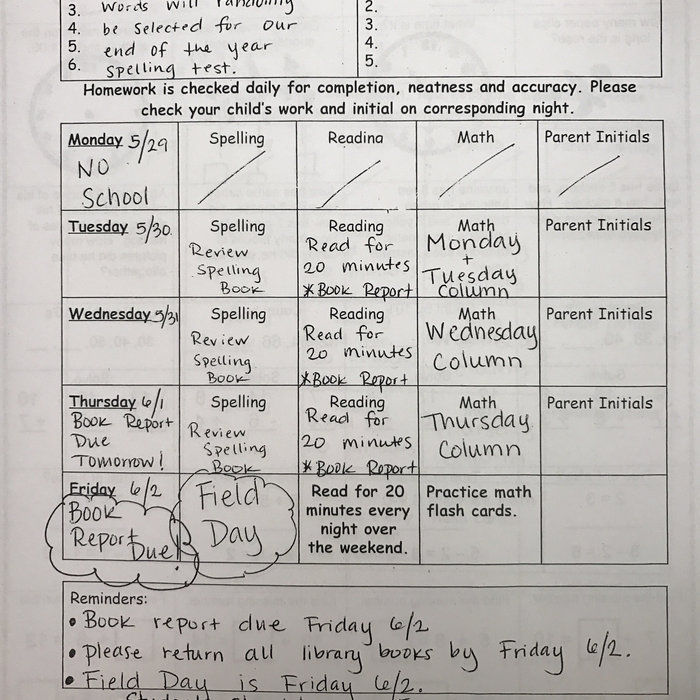 3. Words will randomly
4. be selected for our
5. end of the year
6. spelling test.
2.
3.
4.
5.
Homework is checked daily for completion, neatness and accuracy. Please
check your child's work and initial on corresponding night.
Monday 5/29
NO
School
Spelling
Reading
Math
Parent Initials
Tuesday 5/30
Spelling
Review
Spelling
Book
Reading
Read for
20 minutes
*Book Report
Math
Monday
+
Tuesday
Column
Parent Initials
Wednesday 5/31
Spelling
Review
Spelling
Book
Reading
Read for
20 minutes
*Book Report
Math
Wednesday
Column
Parent Initials
Thursday 6/1
Book Report
Due
Tomorrow!
Spelling
Review
Spelling
Book
Reading
Read for
20 minutes
*Book Report
Math
Thursday
Column
Parent Initials
Friday 6/2
Book
Report
Due!
Field
Day
Read for 20
minutes every
night over
the weekend.
Practice math
flash cards.
Reminders:
• Book report due Friday 6/2
• please return all library books by Friday 6/2.
• Field Day is Friday 6/2.